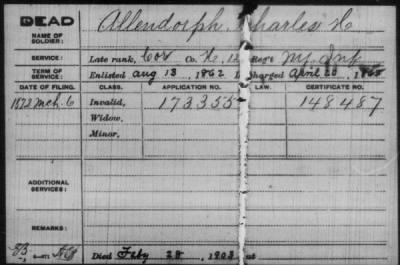 DEAD
NAME OF SOLDIER: Allendorph, Charles H
SERVICE: Late rank, Cor Co. H, 12 Reg't Inf
TERM OF SERVICE: Enlisted Aug 13, 1862 Discharged April 20, 1863
DATE OF FILING. CLASS. APPLICATION NO. LAW. CERTIFICATE NO.
1872 Mch. 6 Invalid, 173355 148487
Widow,
Minor,
ADDITIONAL SERVICES:
REMARKS:
Died Feby 28, 1903, at